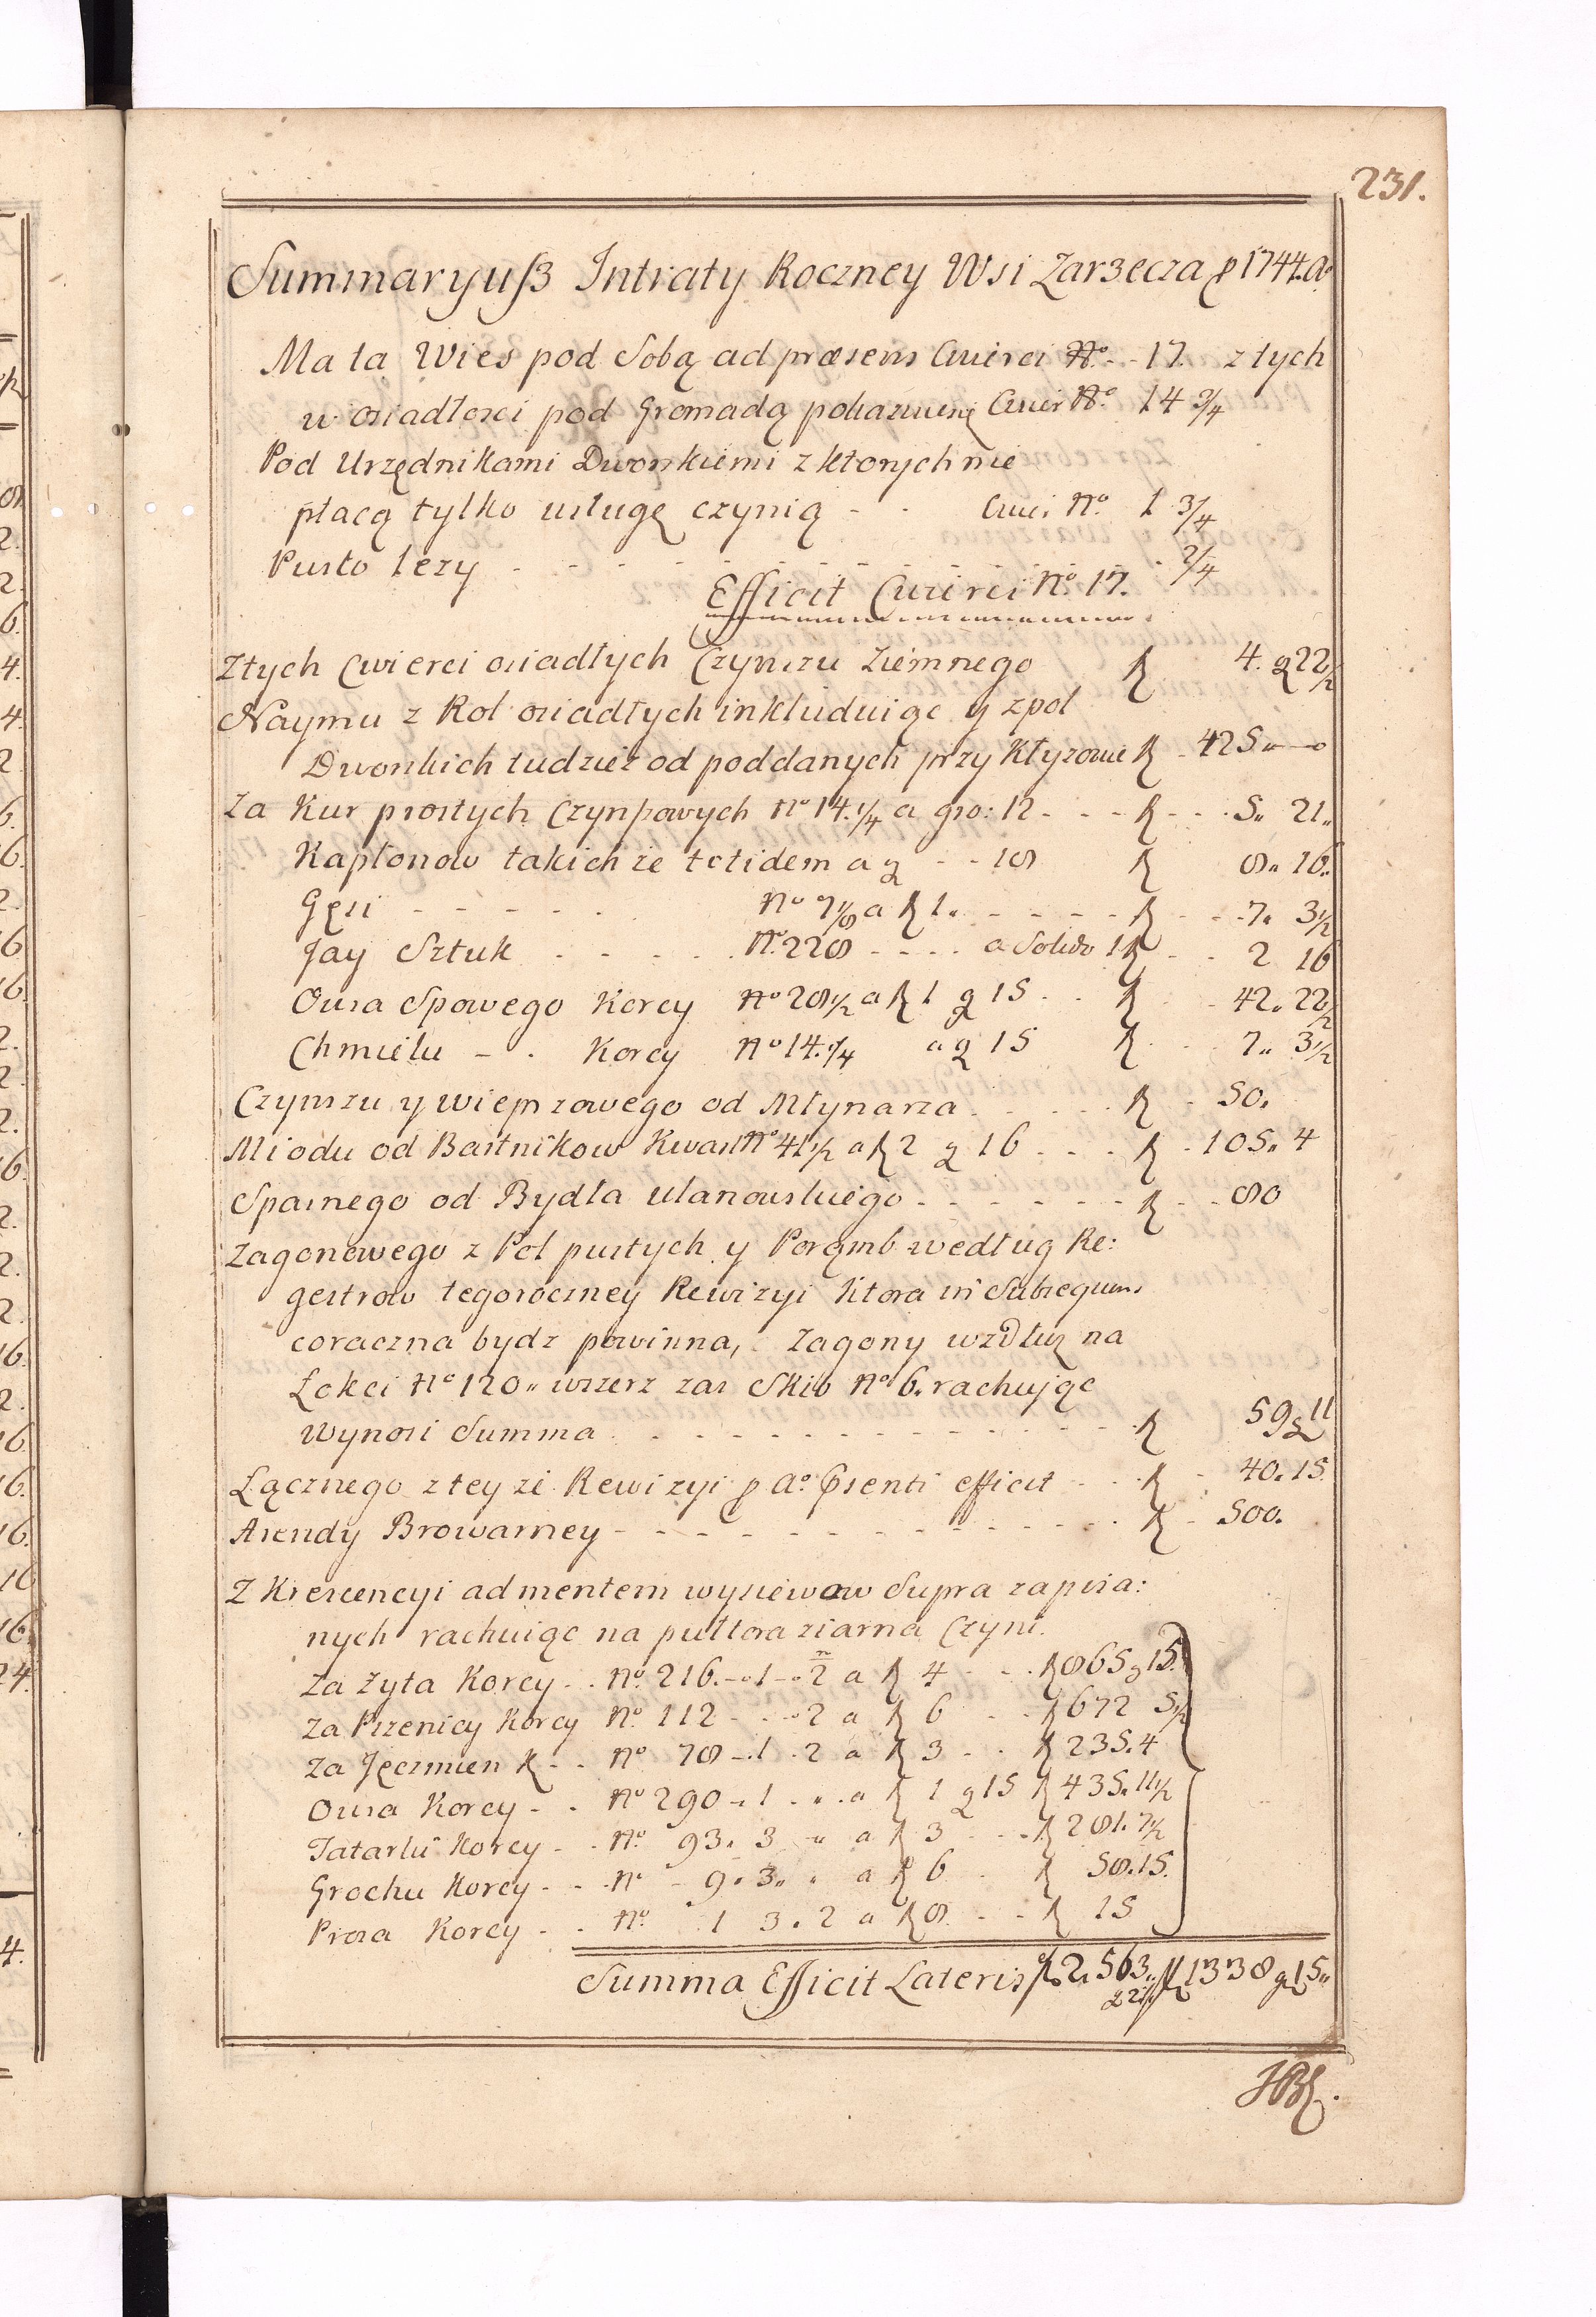 231.
Summaryusz Intraty Roczney Wsi Zarzecza p 1744. Ao
Ma ta Wies pod Sobą ad præsens Cwierci No. - - 17. z tych
w osiadłosci pod Gromadą Cwier No. 14 3/4
Pod Urzędnikami Dworskiemi z ktorych nie
płacą tylko usługę czynią - - Cwier No. 1 3/4
Pusto leży - - - - - - - 2/4
Efficit Cwierci No. 17.
Z tych Cwierci osiadłych Czynszu Ziemnego f 4. g 22 1/2
Naymu z Rol osiadłych inkluduiąc y z pol
Dworskich tudziesz od poddanych przy f - 425 „ —
Za Kur prostych Czynszowych No 14. 1/4 a gro: 12 - - - f - - - 5„ 21„
Kapłonow takichze totidem a g - - 18 f 8„ 16„
Gęsi - - - - - No 7 1/8 a f 1„ - - - - f - - 7„ 3 1/2
Jay Sztuk - - - - No. 228 - - - - a Solido 1 f - - 2 16
Owsa Spowego Korcy No 28 1/2 a f 1 g 15 - - f - 42„ 22 1/2
Chmielu - - Korcy No 14. 1/4 a g 15 f - 7„ 3 1/2
Czynszu y wieprzowego od Młynarza - - - - f - 50„
Miodu od Bartnikow Kwart No 41 1/2 a f 2 g 16 - - - f - 105„ 4
Spasnego od Bydła Ulanowskiego - - - - - - f - - 80
Zagonowego z Pol pustych y Poręmb według Re:
gestrow tegoroczney Rewizyi ktora in Subsequens
coroczna bydz powinna, Zagony wzdłuz na
Łokci No 120„ wszerz zas Skib No 6. rachując
Wynosi Summa - - - - - - - - f 59 g 11
Łącznego z teyze Rewizyi p Ao. Psenti efficit - - - f - 40„ 15.
Arendy Browarney - - - - - - - - - f - 500.
Z Krescencyi ad mentem wysiewow Supra zapisa:
nych rachuiąc na pułtora ziarna Czyni.
Za Zyta Korcy - - No. 216. - 1 - 2 a f 4 - - - f 865 g 15.
Za Pszenicy Korcy No. 112 - - - 2 a f 6 - - f 672 5 1/2
Za Jęczmien K - - No 78 - 1 . 2 a f 3 - - f 235. 4
Owsa Korcy - - No 290 - 1 . „ . a f 1 g 15 f 435„ 11 1/2
Tatarki Korcy - - No. 93„ 3 „ a f 3 - - - f 281. 7 1/2
Grochu Korcy - - No - 9„ 3„ „ a f 6 - f 58„ 15.
Prosa Korcy - - No. 1 3 . 2 a f 8 - - f 15
Summa Efficit Lateris f 2, 563„ g 2 1/2 f 1338 g 15„